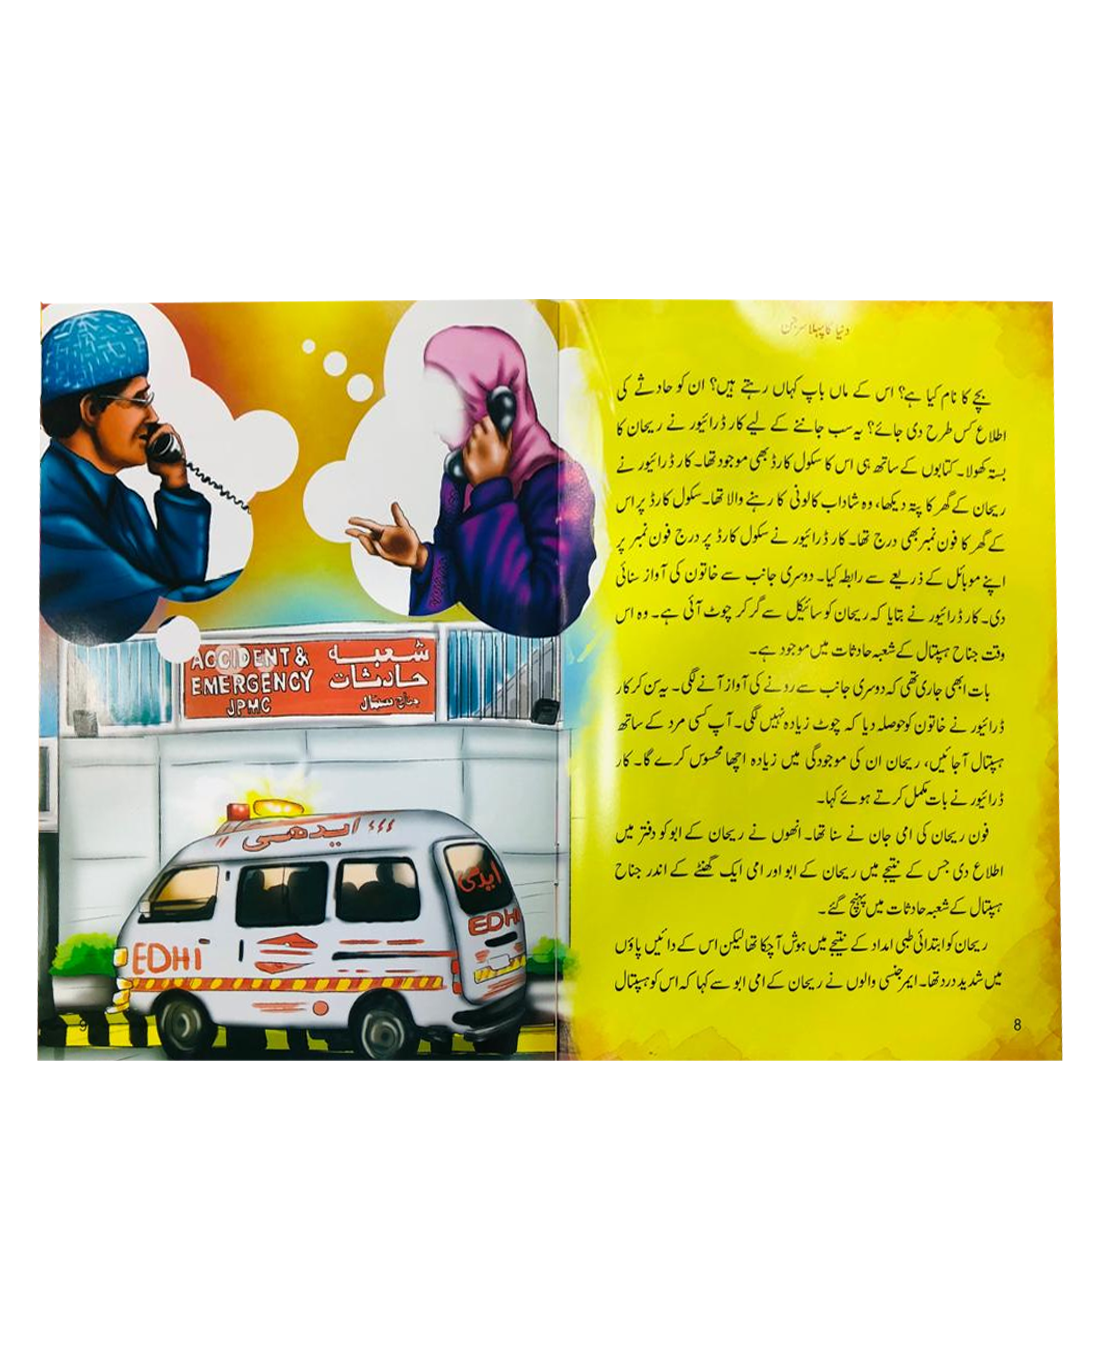 دنیا کا پہلا سرجن
بچے کا نام کیا ہے؟ اس کے ماں باپ کہاں رہتے ہیں؟ ان کو حادثے کی
اطلاع کس طرح دی جائے؟ یہ سب جاننے کے لیے کار ڈرائیور نے ریحان کا
بستہ کھولا۔ کتابوں کے ساتھ ہی اس کا سکول کارڈ بھی موجود تھا۔ کار ڈرائیور نے
ریحان کے گھر کا پتہ دیکھا، وہ شاداب کالونی کا رہنے والا تھا۔ سکول کارڈ پر اس
کے گھر کا فون نمبر بھی درج تھا۔ کار ڈرائیور نے سکول کارڈ پر درج فون نمبر پر
اپنے موبائل کے ذریعے سے رابطہ کیا۔ دوسری جانب سے خاتون کی آواز سنائی
دی۔ کار ڈرائیور نے بتایا کہ ریحان کو سائیکل سے گر کر چوٹ آئی ہے۔ وہ اس
وقت جناح ہسپتال کے شعبہ حادثات میں موجود ہے۔
بات ابھی جاری تھی کہ دوسری جانب سے رونے کی آواز آنے لگی۔ یہ سن کر کار
ڈرائیور نے خاتون کو حوصلہ دیا کہ چوٹ زیادہ نہیں لگی۔ آپ کسی مرد کے ساتھ
ہسپتال آجائیں، ریحان ان کی موجودگی میں زیادہ اچھا محسوس کرے گا۔ کار
ڈرائیور نے بات مکمل کرتے ہوئے کہا۔
فون ریحان کی امی جان نے سنا تھا۔ انھوں نے ریحان کے ابو کو دفتر میں
اطلاع دی جس کے نتیجے میں ریحان کے ابو اور امی ایک گھنٹے کے اندر جناح
ہسپتال کے شعبہ حادثات میں پہنچ گئے۔
ریحان کو ابتدائی طبی امداد کے نتیجے میں ہوش آچکا تھا لیکن اس کے دائیں پاؤں
میں شدید درد تھا۔ ایمرجنسی والوں نے ریحان کے امی ابو سے کہا کہ اس کو ہسپتال
8
ACCIDENT & شعبہ
EMERGENCY حادثات
JPMC جناح ہسپتال
ایدھی
ایدھی
EDHI
EDHI
9